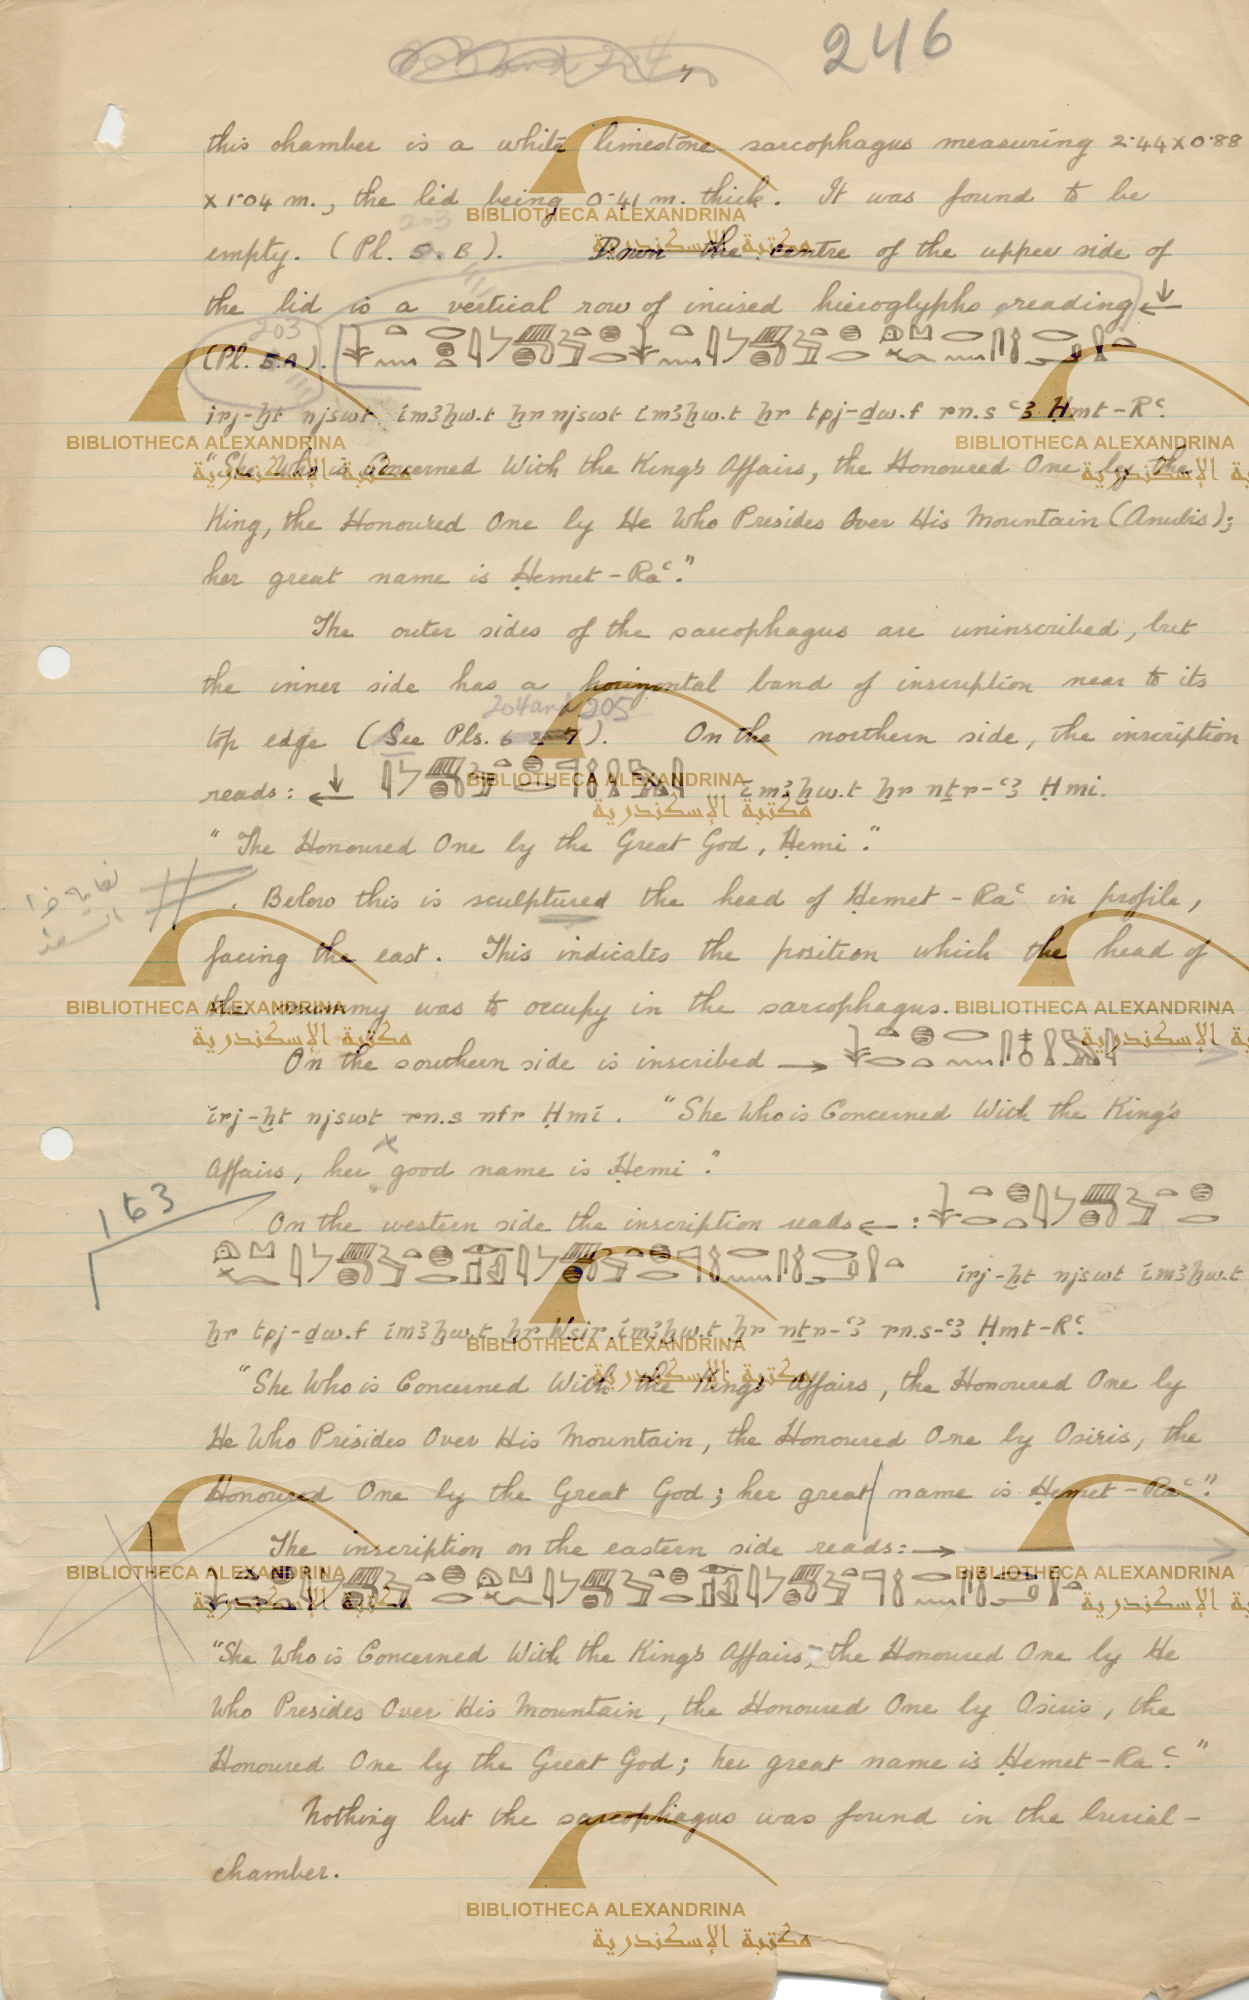 246
7
this chamber is a white limestone sarcophagus measuring 2·44 x 0·88
x 1·04 m., the lid being 0·41 m. thick. It was found to be
203
empty. (Pl. 5. B). Down the centre of the upper side of
the lid is a vertical row of incised hieroglyphs reading
203
(Pl. 5.A).
irj-ẖt njswt imꜣḫw.t ḫr njswt imꜣḫw.t ḫr tpj-ḏw.f rn.s ꜥꜣ Ḥmt-Rꜥ.
"She Who is Concerned With the King's Affairs, the Honoured One by the
King, the Honoured One by He Who Presides Over His Mountain (Anubis);
her great name is Ḥemet-Raꜥ."
The outer sides of the sarcophagus are uninscribed, but
the inner side has a horizontal band of inscription near to its
204 and 205
top edge (See Pls. 6 & 7). On the northern side, the inscription
reads: imꜣḫw.t ḫr nṯr-ꜥꜣ Ḥmi.
"The Honoured One by the Great God, Ḥemi."
Below this is sculptured the head of Ḥemet-Raꜥ in profile,
facing the east. This indicates the position which the head of
the mummy was to occupy in the sarcophagus.
On the southern side is inscribed →
irj-ẖt njswt rn.s nfr Ḥmi. "She Who is Concerned With the King's
Affairs, her good name is Ḥemi."
163
On the western side the inscription reads ← :
irj-ẖt njswt imꜣḫw.t
ḫr tpj-ḏw.f imꜣḫw.t ḫr Wsir imꜣḫw.t ḫr nṯr-ꜥꜣ rn.s-ꜥꜣ Ḥmt-Rꜥ.
"She Who is Concerned With the King's Affairs, the Honoured One by
He Who Presides Over His Mountain, the Honoured One by Osiris, the
Honoured One by the Great God; her great name is Ḥemet-Raꜥ."
The inscription on the eastern side reads: →
"She Who is Concerned With the King's Affairs, the Honoured One by He
Who Presides Over His Mountain, the Honoured One by Osiris, the
Honoured One by the Great God; her great name is Ḥemet-Raꜥ."
Nothing but the sarcophagus was found in the burial-
chamber.
BIBLIOTHECA ALEXANDRINA
مكتبة الإسكندرية